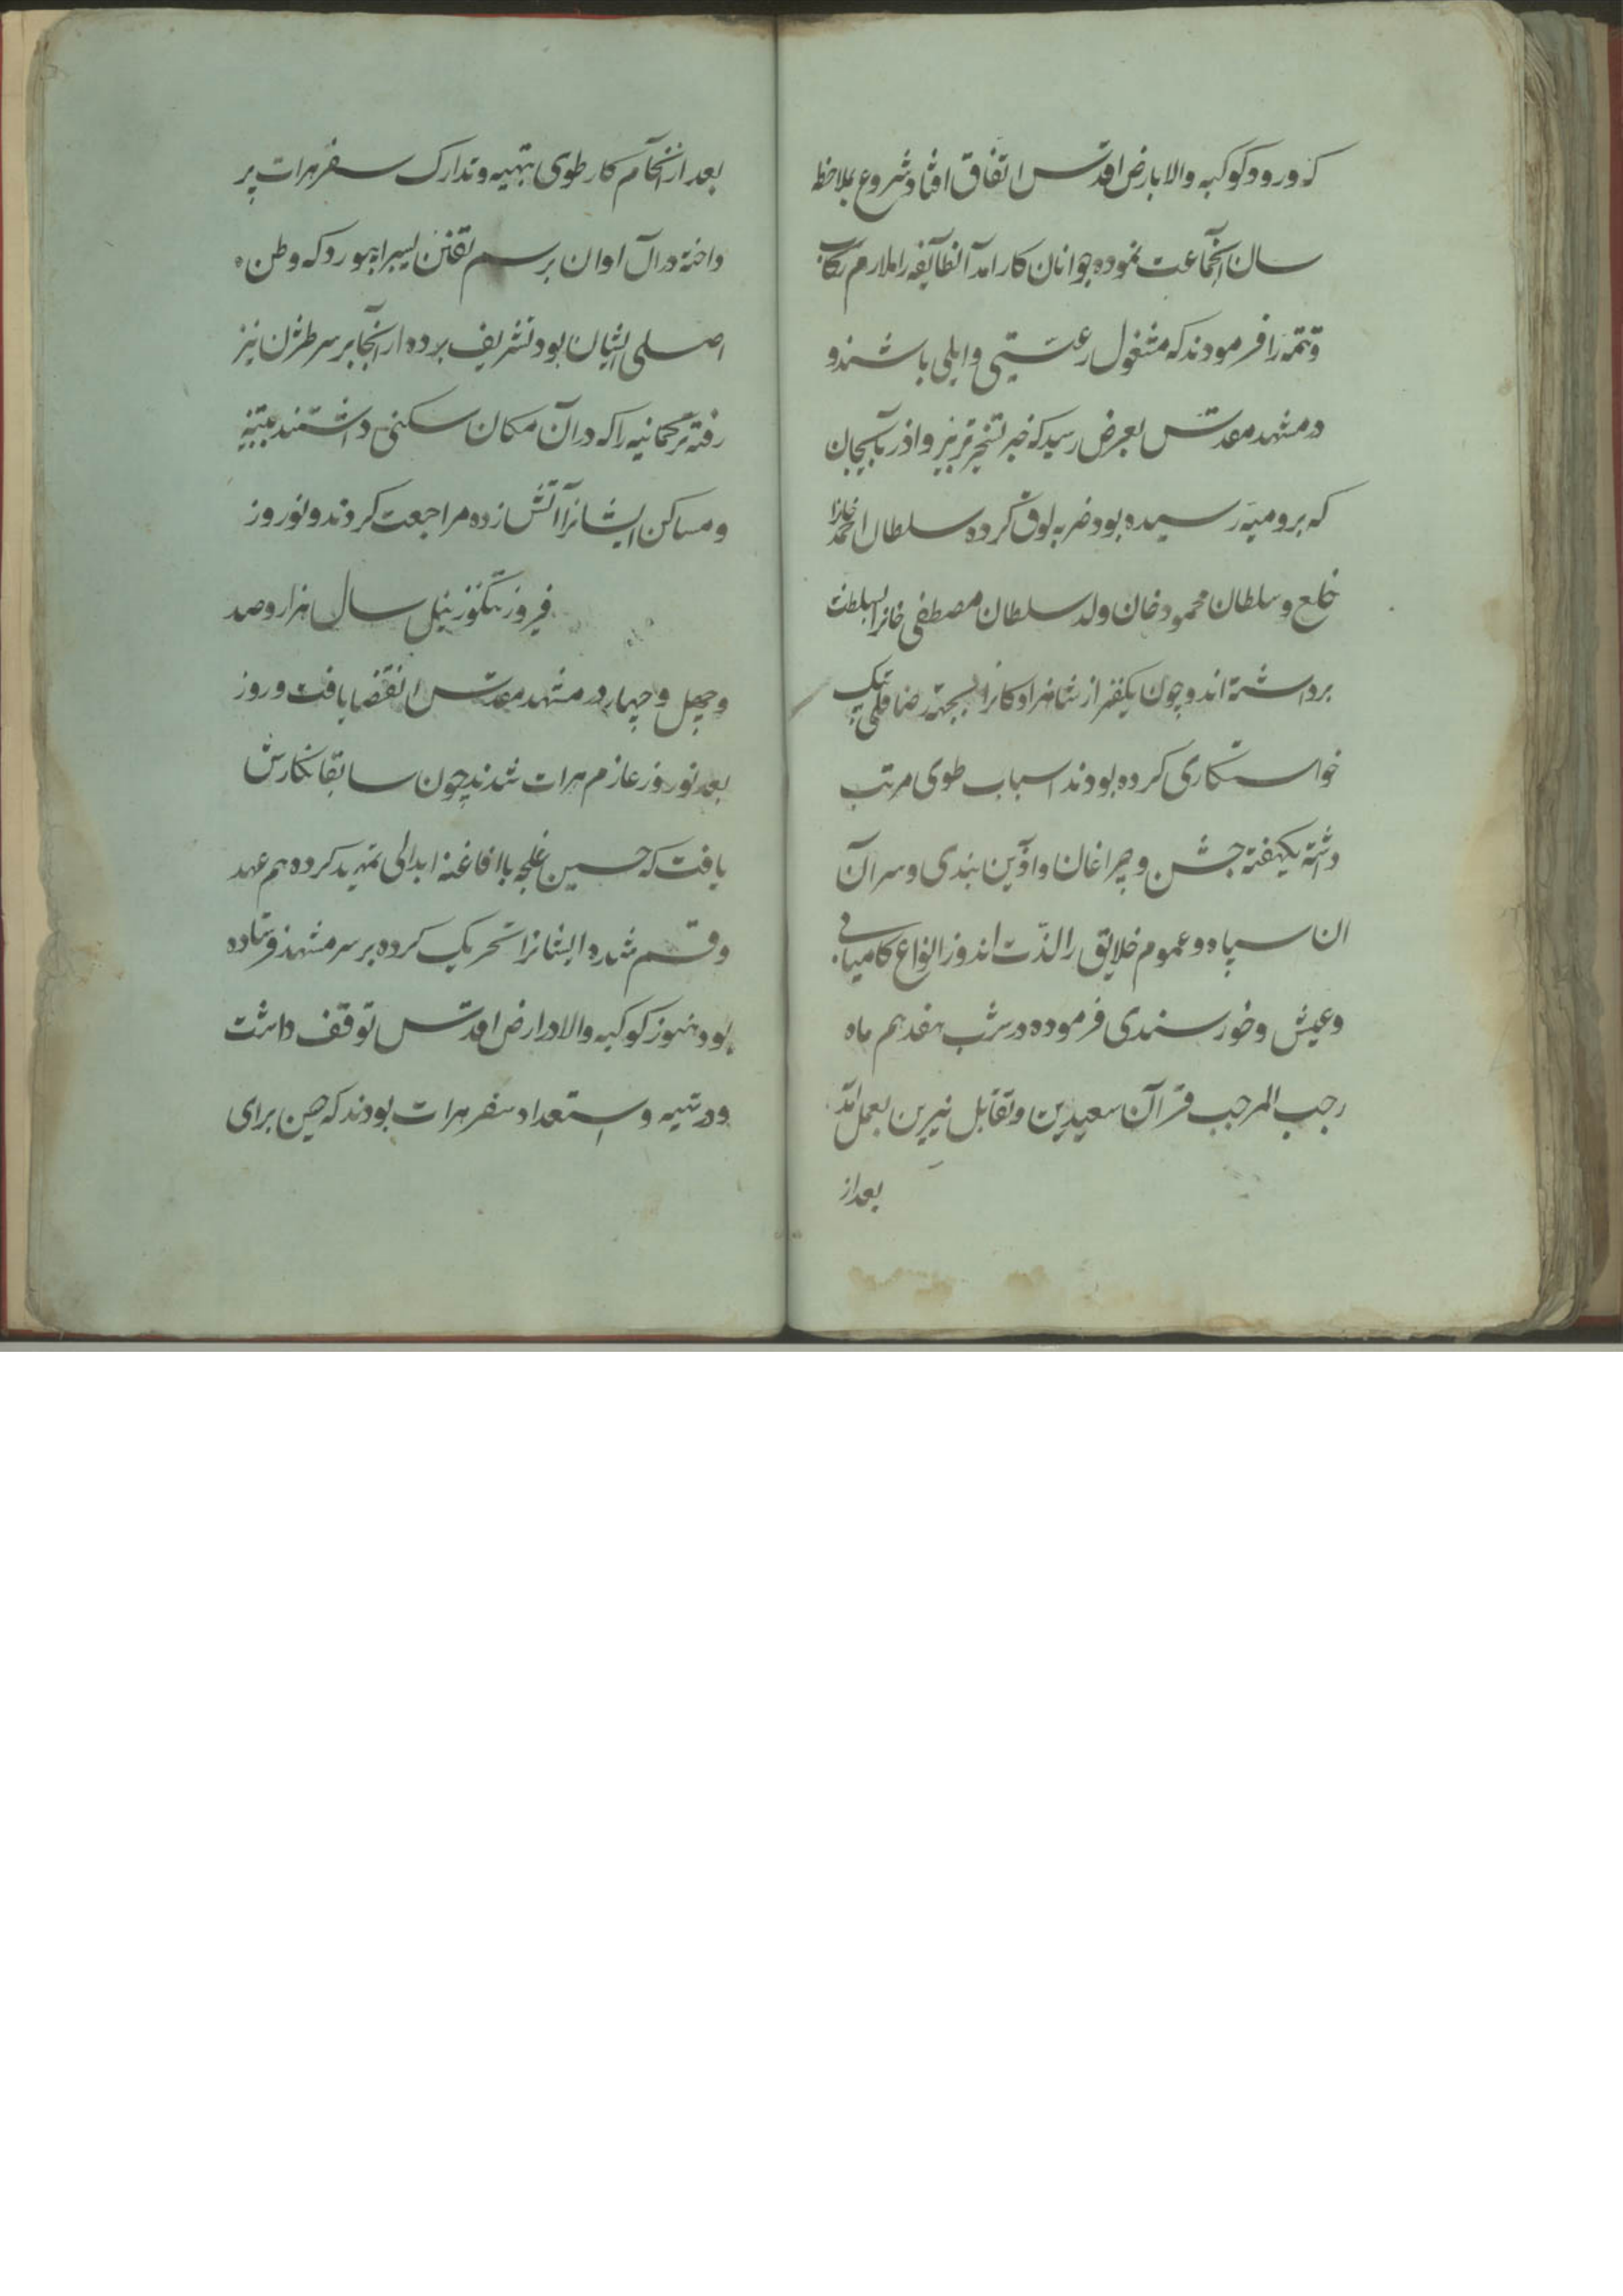 که ورود کوکبه والا بارض اقدس اتفاق افتاد شروع بملاحظه
سان آنجماعت نموده جوانان کارآمد آنطایفه را ملازم رکاب
و تتمه را فرمودند که مشغول رعیتی و ایلی باشند و
در مشهد مقدس بعرض رسید که خبر تسخیر تبریز و اذربایجان
که برومیه رسیده بود ضربه لوق کرده سلطان احمد خانرا
خلع و سلطان محمود خان ولد سلطان مصطفی خانرا بسلطنت
برداشته اند و چون یکنفر از شاهزادکانرا بجهة رضا قلی بیک
خواستکاری کرده بودند اسباب طوی مرتب
داشته یکهفته جشن و چراغان و آذین بندی و سران
ان سپاه و عموم خلایق را لذت اندوز انواع کامیابی
و عیش و خورسندی فرموده در شب هفدهم ماه
رجب المرجب قران سعیدین و تقابل نیرین بعمل آمد
بعد از
بعد از انجام کار طوی بتهیه و تدارک سفر هرات پر
داخته در آن اوان برسم تفنن لیبراهبورد که وطن
اصلی ایشان بود تشریف برده از آنجا بر سر طژن نیز
رفته ترکمانیه را که در آن مکان سکنی داشتند تنبیه
و مساکن ایشانرا آتش زده مراجعت کردند و نوروز
فیروز تنکوزئیل سال هزار و صد
و چهل و چهار در مشهد مقدس انقضا یافت و روز
بعد نوروز عازم هرات شدند چون سابقا نکارش
یافت که حسین غلجه با افاغنه ابدالی تمهید کرده هم عهد
و قسم شده ایشانرا تحریک کرده بر سر مشهد فرستاده
بود هنوز کوکبه والا در ارض اقدس توقف داشت
و در تهیه و استعداد سفر هرات بودند که حسین برای